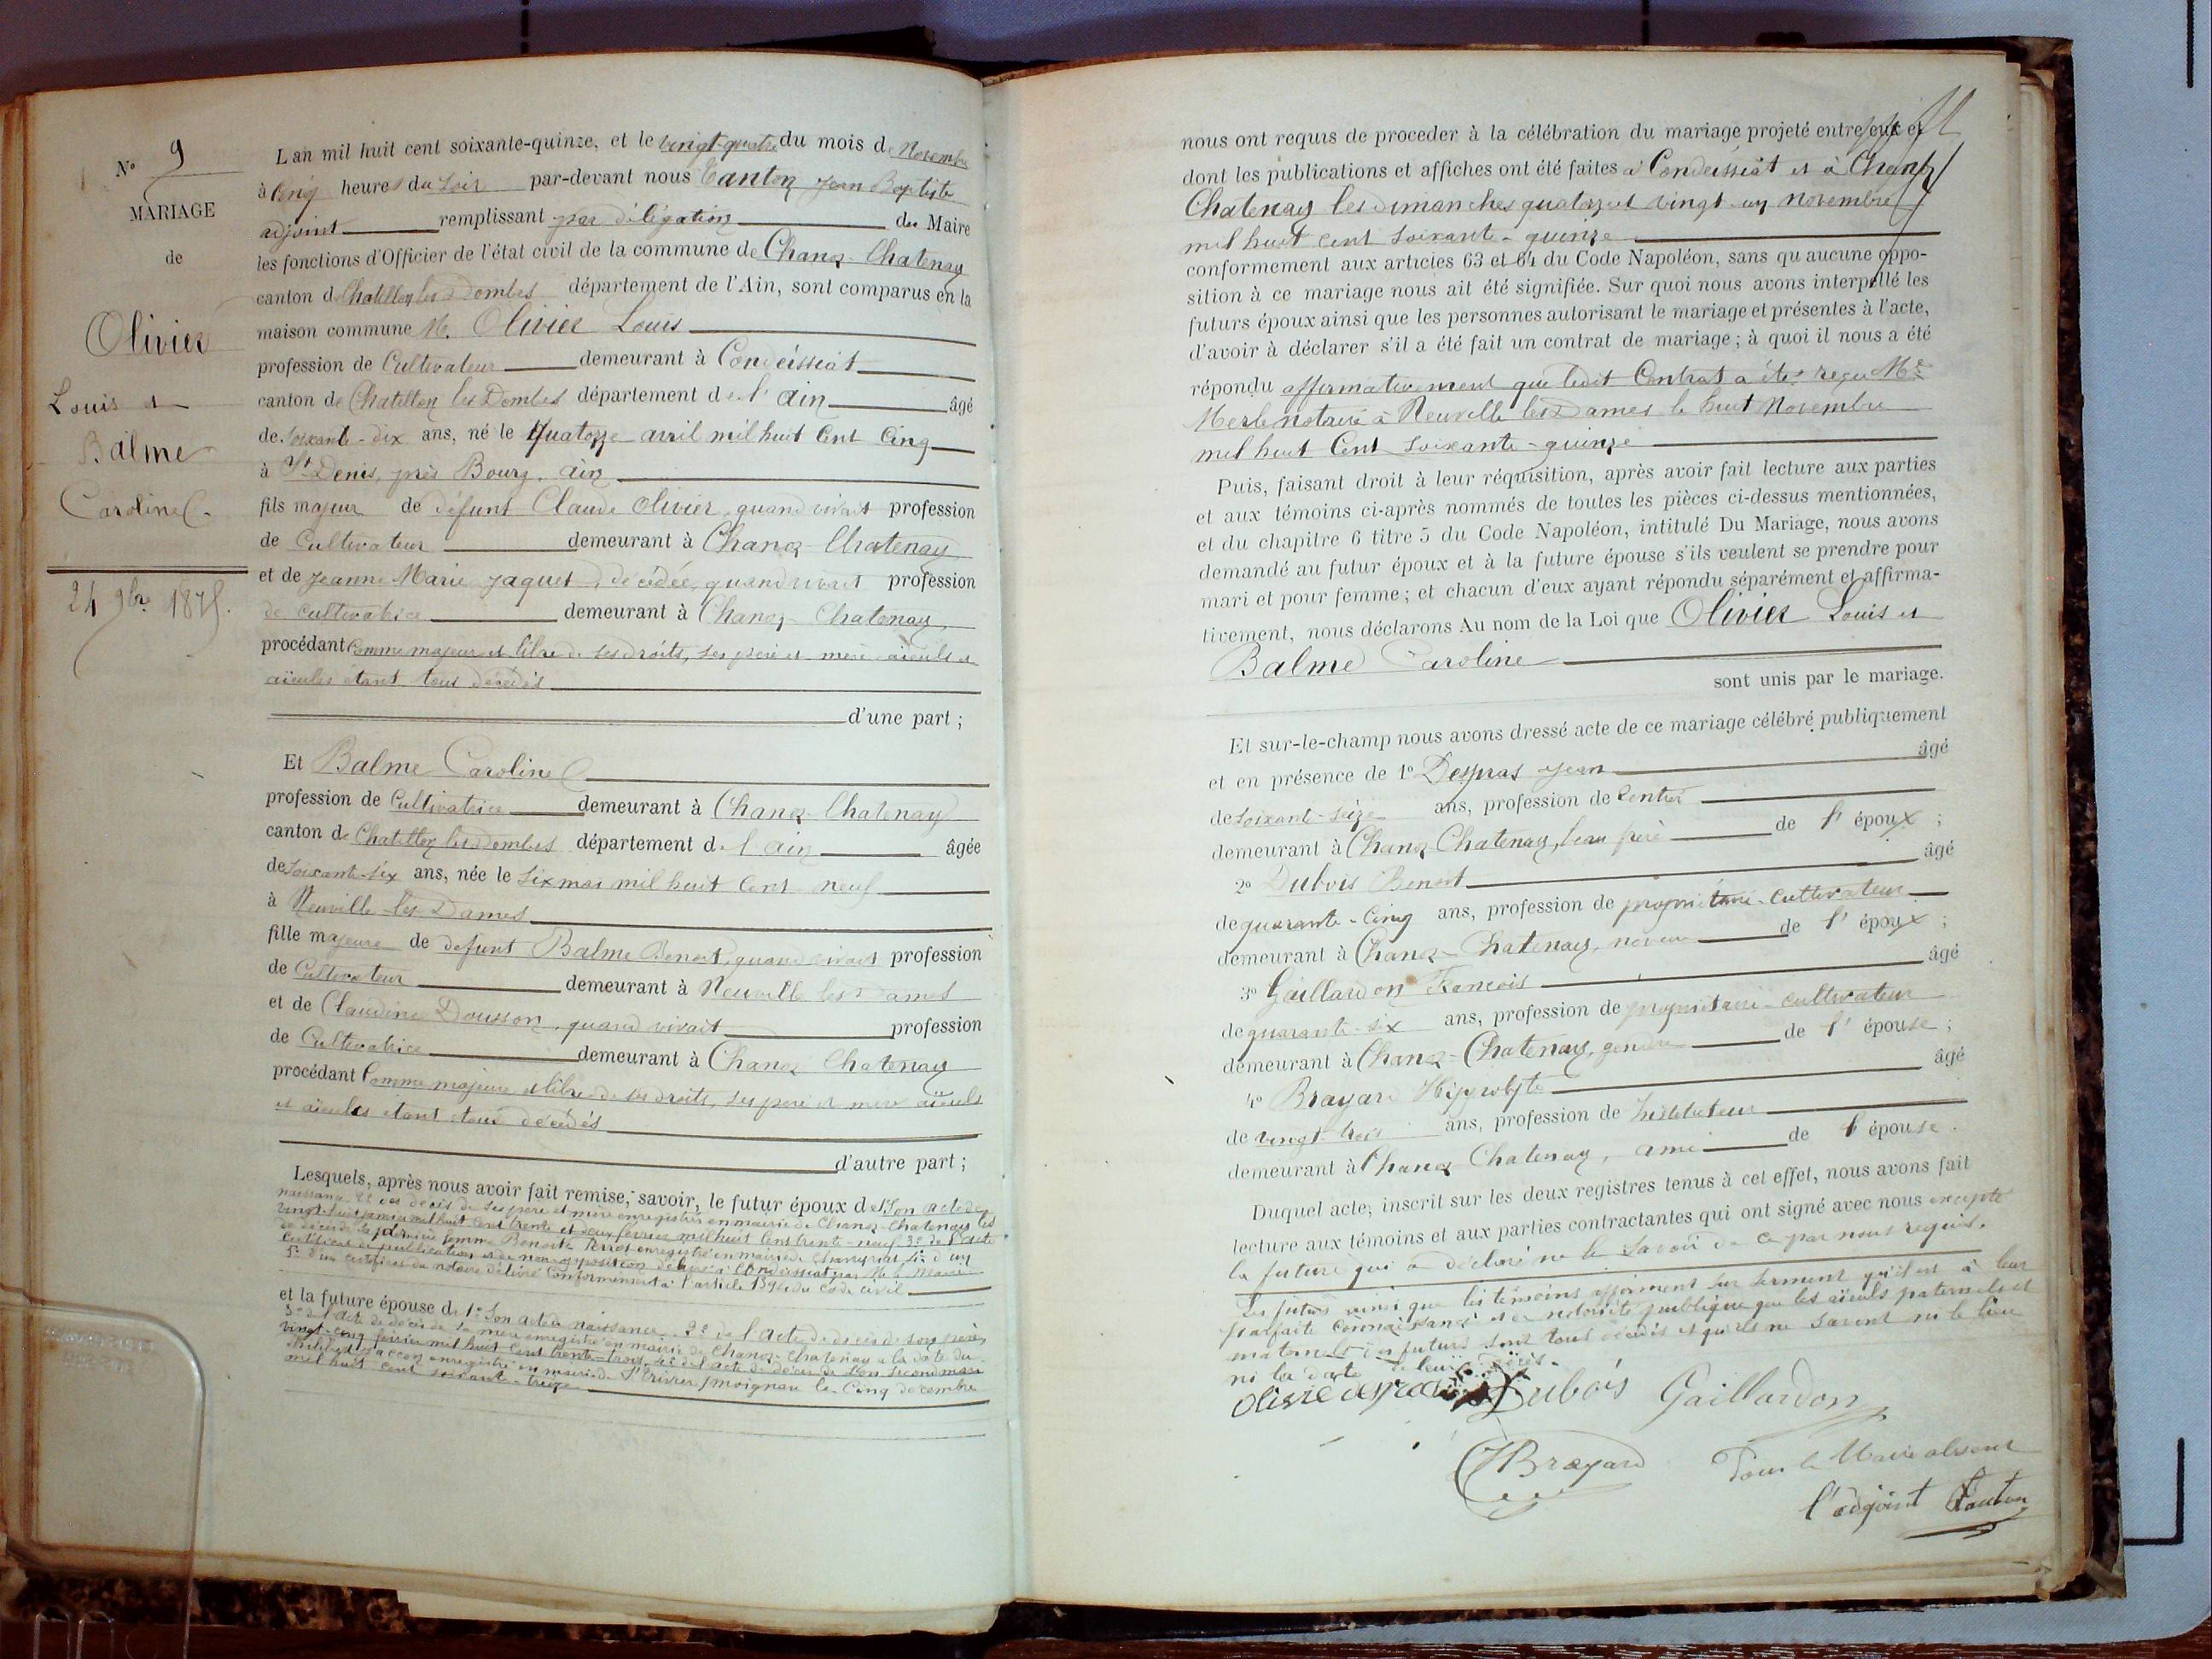 N° 9
MARIAGE
de
Olivier
Louis et
Balme
Caroline
24 9bre 1875.
L'an mil huit cent soixante-quinze, et le vingt-quatre du mois de Novembre
à Cinq heures du soir par-devant nous Tanton Jean Baptiste
adjoint remplissant par délégation du Maire
les fonctions d'Officier de l'état civil de la commune de Chanoz-Chatenay
canton de Chatillon les Dombes département de l'Ain, sont comparus en la
maison commune M. Olivier Louis
profession de Cultivateur demeurant à Condeissiat
canton de Chatillon les Dombes département de l'Ain âgé
de soixante-dix ans, né le Quatorze avril mil huit Cent Cinq
à St Denis, près Bourg. Ain
fils majeur de défunt Claude Olivier, quand vivait profession
de Cultivateur demeurant à Chanoz Chatenay
et de Jeanne Marie Jaquet, décédée, quand vivait profession
de cultivatrice demeurant à Chanoz-Chatenay,
procédant Comme majeur et libre de ses droits, ses père et mère aïeuls et
aïeules étant tous décédés
d'une part ;
Et Balme Caroline
profession de Cultivatrice demeurant à Chanoz-Chatenay
canton de Chatillon les Dombes département de l'Ain âgée
de soixante-six ans, née le six mai mil huit Cent neuf
à Neuville les Dames
fille majeure de défunt Balme Benoit, quand vivait profession
de Cultivateur demeurant à Neuville les Dames
et de Claudine Dousson, quand vivait profession
de Cultivatrice demeurant à Chanoz Chatenay
procédant Comme majeure et libre de ses droits, ses père et mère aïeuls
et aïeules étant tous décédés
d'autre part ;
Lesquels, après nous avoir fait remise, savoir, le futur époux de 1° Son acte de
naissance. 2° des décès de ses père et mère enregistrés en mairie de Chanoz-Chatenay les
vingt janvier mil huit Cent trente et deux février mil huit Cent trente-neuf. 3° de l'acte
de décès de sa première femme Benoite Perrot enregistré en mairie de Chaveyriat. 4° d'un
certificat de publication et de non opposition délivré à Condeissiat par M. le Maire
5° d'un certificat du notaire délivré conformément à l'article 1394 du Code civil
et la future épouse de 1° Son acte de naissance. 2° de l'acte de décès de son père,
3° de l'acte de décès de sa mère enregistré en mairie de Chanoz-Chatenay à la date du
vingt-cinq février mil huit Cent trente-trois, 4° de l'acte de décès de Son Second mari
enregistré en mairie de St le Cinq décembre
mil huit cent soixante-treize
nous ont requis de procéder à la célébration du mariage projeté entre eux et
dont les publications et affiches ont été faites à Condeissiat et à Chanoz
Chatenay les dimanches quatorze et vingt-un novembre
mil huit cent soixante-quinze
conformément aux articles 63 et 64 du Code Napoléon, sans qu'aucune oppo-
sition à ce mariage nous ait été signifiée. Sur quoi nous avons interpellé les
futurs époux ainsi que les personnes autorisant le mariage et présentes à l'acte,
d'avoir à déclarer s'il a été fait un contrat de mariage ; à quoi il nous a été
répondu affirmativement que ledit Contrat a été reçu Me
Merle notaire à Neuville les Dames le huit Novembre
mil huit Cent Soixante-quinze
Puis, faisant droit à leur réquisition, après avoir fait lecture aux parties
et aux témoins ci-après nommés de toutes les pièces ci-dessus mentionnées,
et du chapitre 6 titre 5 du Code Napoléon, intitulé Du Mariage, nous avons
demandé au futur époux et à la future épouse s'ils veulent se prendre pour
mari et pour femme ; et chacun d'eux ayant répondu séparément et affirma-
tivement, nous déclarons Au nom de la Loi que Olivier Louis et
Balme Caroline
sont unis par le mariage.
Et sur-le-champ nous avons dressé acte de ce mariage célébré publiquement
et en présence de 1° Despras Jean âgé
de soixante-seize ans, profession de rentier
demeurant à Chanoz-Chatenay, beau frère de l'époux ;
2° Dubois Benoit âgé
de quarante-Cinq ans, profession de propriétaire-cultivateur
demeurant à Chanoz-Chatenay, neveu de l'époux ;
3° Gaillardon François âgé
de quarante-six ans, profession de propriétaire-cultivateur
demeurant à Chanoz-Chatenay, gendre de l'épouse ;
4° Brayard Hippolyte âgé
de vingt-trois ans, profession de Instituteur
demeurant à Chanoz Chatenay, ami de l'épouse.
Duquel acte, inscrit sur les deux registres tenus à cet effet, nous avons fait
lecture aux témoins et aux parties contractantes qui ont signé avec nous excepté
la future qui a déclaré ne le savoir de ce par nous requis.
Les futurs ainsi que les témoins affirment sur serment qu'il est à leur
parfaite connaissance et de notoriété publique que les aïeuls paternels et
maternels des futurs sont tous décédés et qu'ils ne savent ni le lieu
ni la date de leurs décès.
Olivie despras Dubois Gaillardon
HBrayard Pour le Maire absent
l'adjoint Tanton